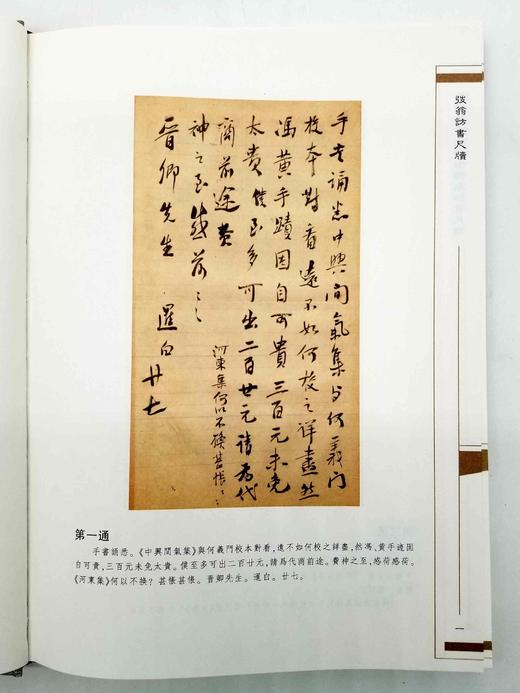 弢翁訪書尺牘
手書誦悉中興間氣集与何義門
校本對看遠不如何校之詳盡然
馮黃手蹟固自可貴三百元未免
太貴僕至多可出二百廿元請爲代
商前途費
神之至感荷〻〻
河東集何以不換甚悵〻〻
晉卿先生 暹白 廿七
第一通
手書誦悉。《中興間氣集》與何義門校本對看,遠不如何校之詳盡,然馮、黃手迹固
自可貴,三百元未免太貴。僕至多可出二百廿元,請爲代商前途。費神之至,感荷感荷。
《河東集》何以不換?甚悵甚悵。晉卿先生。暹白。廿七。
一